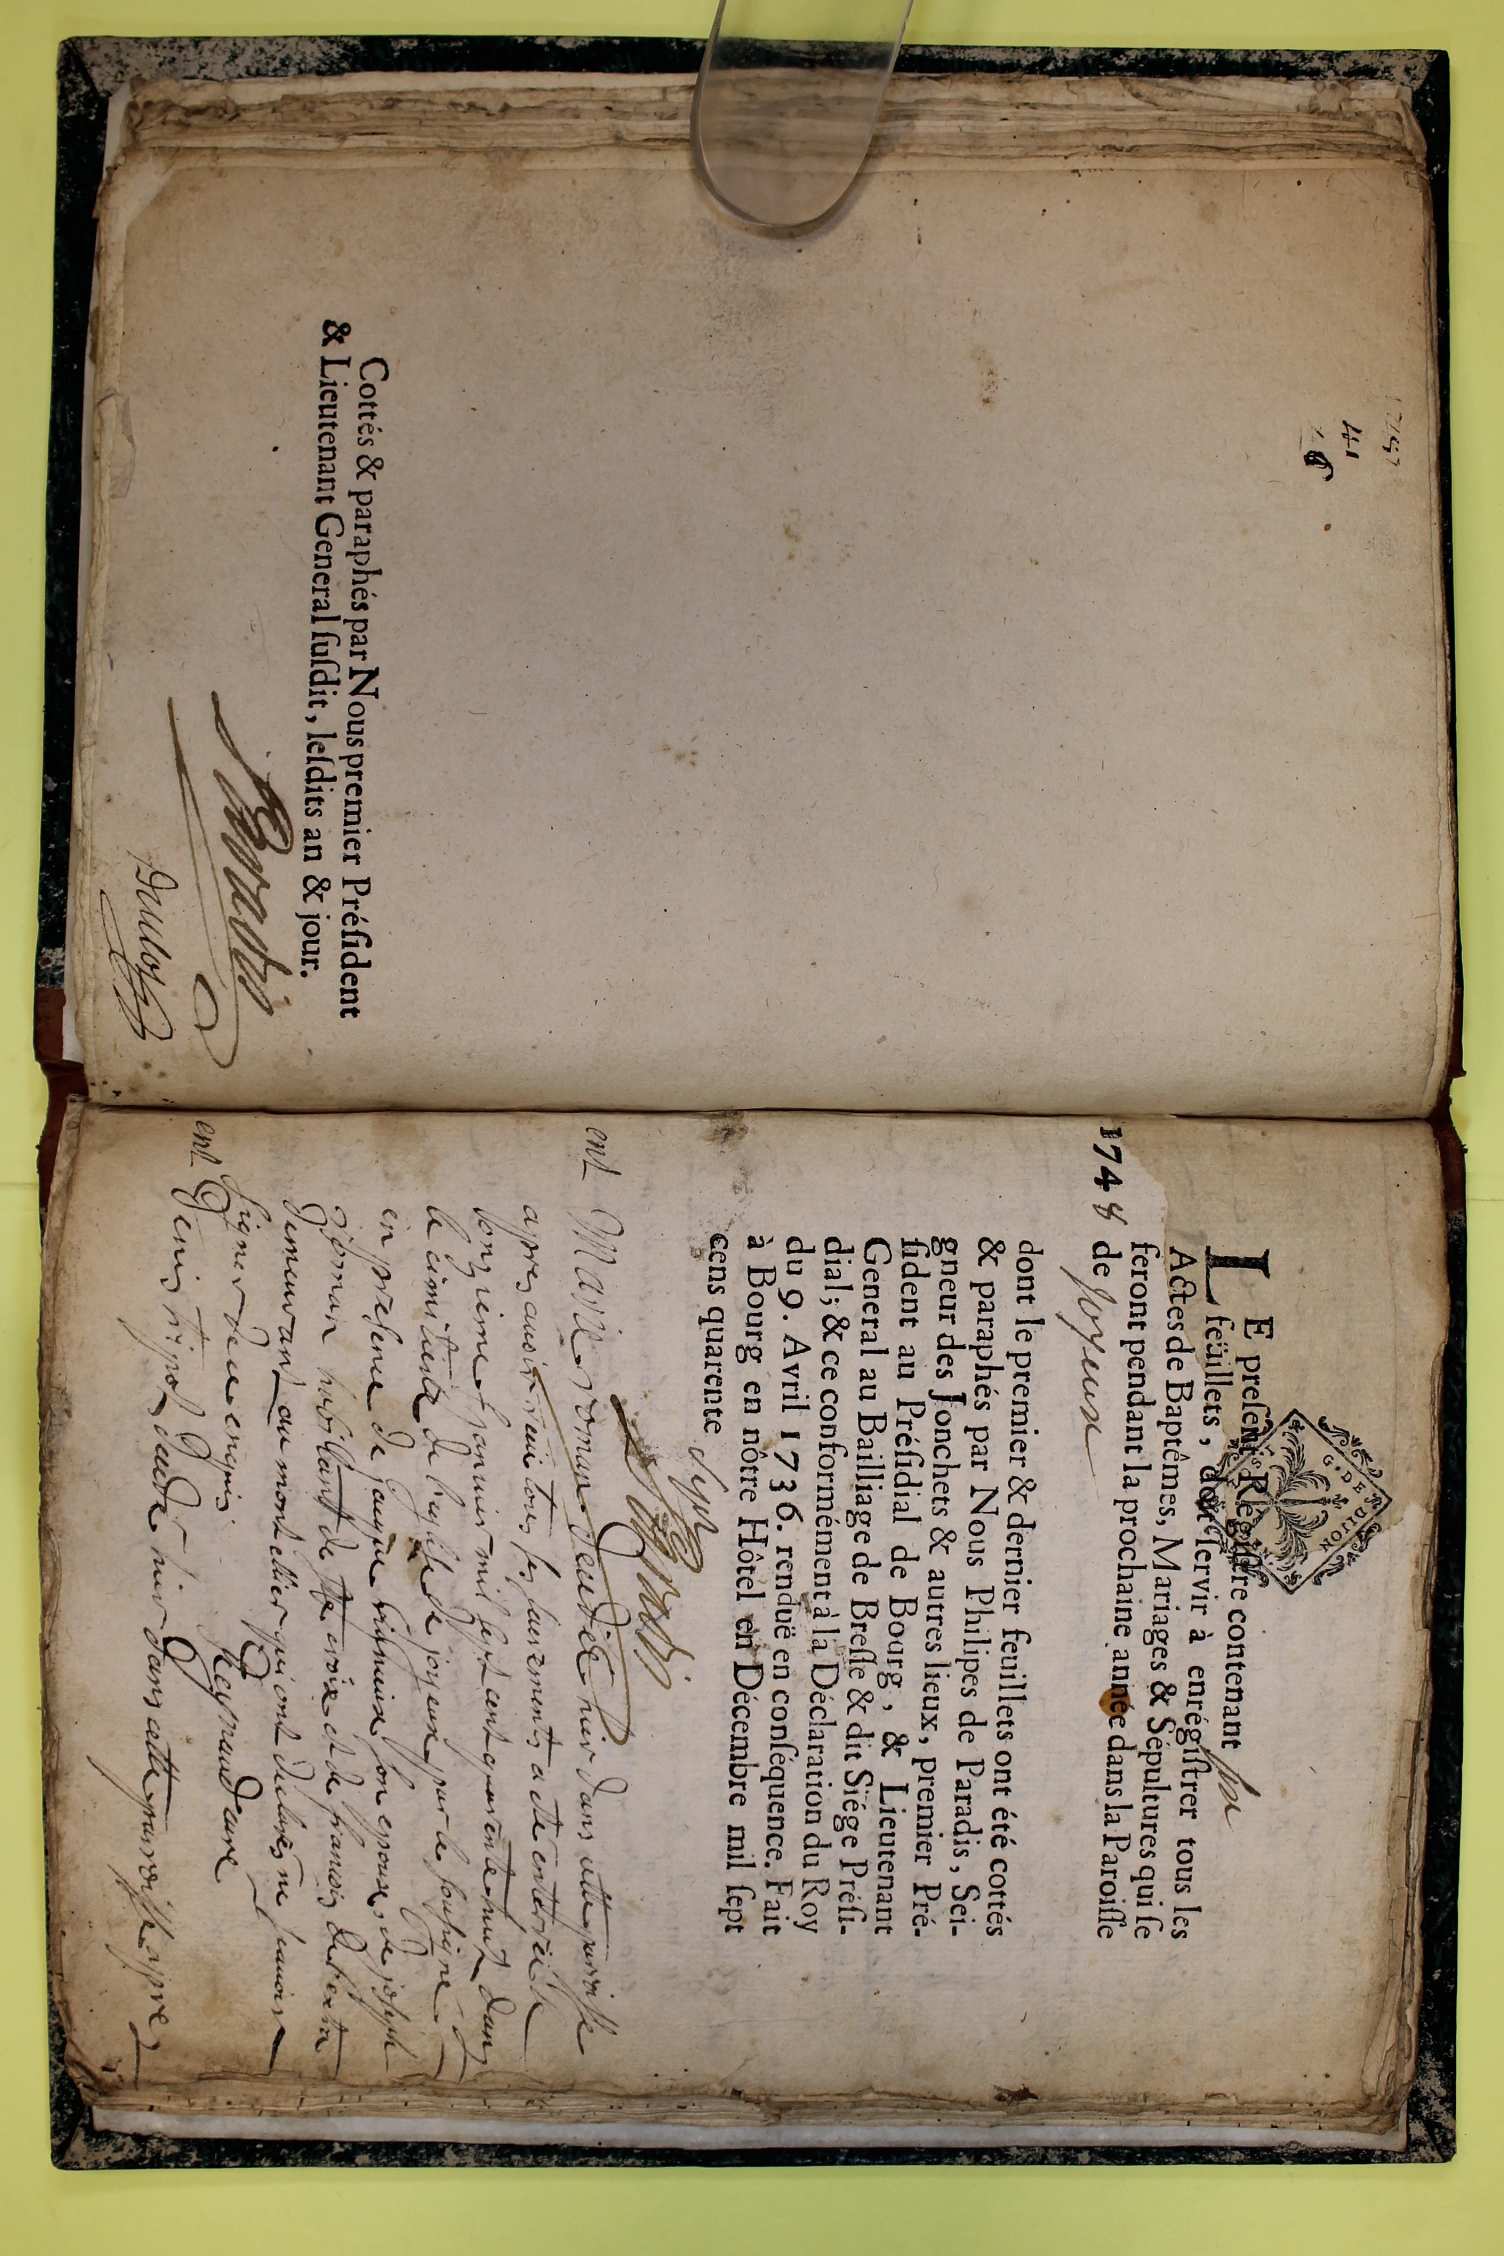 1748
41
Cottés & paraphés par Nous premier Préſident
& Lieutenant General ſuſdit, leſdits an & jour.
G. DE DIJON
LE preſent Régiſtre contenant ſix
feüillets, doit ſervir à enrégiſtrer tous les
Actes de Baptêmes, Mariages & Sépultures qui ſe
feront pendant la prochaine année dans la Paroiſſe
1748 de Joyeux
dont le premier & dernier feuillets ont été cottés
& paraphés par Nous Philipes de Paradis, Sei-
gneur des Jonchets & autres lieux, premier Pré-
ſident au Préſidial de Bourg, & Lieutenant
General au Bailliage de Breſſe & dit Siége Préſi-
dial; & ce conformément à la Déclaration du Roy
du 9. Avril 1736. renduë en conſéquence. Fait
à Bourg en nôtre Hôtel en Décembre mil ſept
cens quarente sept
ent Marie roman deceda hier dans cette parroisse
apres avoir receu tous ses sacrements a ete enterrée le
onzieme janvier mil sept cent quarente huit dans
le cimetiere de l'eglise de joyeux par le soussigné
en presence de jaque son epoux, de joseph
roman habitant de ste croix et de francois
demeurant au montellier qui ont declarés ne scavoir
signer de ce enquis Reynaud curé
ent Denis deceda hier dans cette parroisse apres